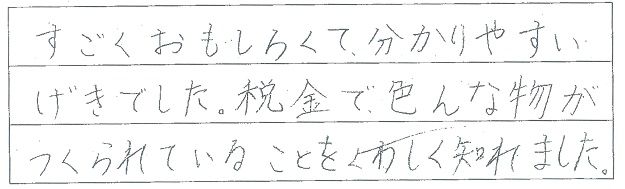 すごくおもしろくて、分かりやすい
げきでした。税金で、色んな物が
つくられていることをくわしく知れました。